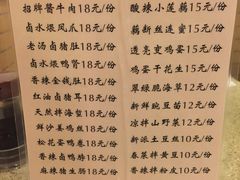 招牌酱牛肉18元/份
卤水煨凤爪18元/份
老汤卤猪肚18元/份
卤水煨鸭肾18元/份
香辣金钱肚18元/份
红油卤猪耳18元/份
天然拌海蜇18元/份
鲜沙姜鸡丝18元/份
松花蛋鸭卷18元/份
香辣卤鸭脖18元/份
麻辣猪生肠18元/份
酸辣小莲藕15元/份
藕断丝连蜜15元/份
透亮变鸡蛋15元/份
鸡蛋干花生15元/份
翠绿脆海草12元/份
新鲜豌豆苗12元/份
凉拌山野菜12元/份
新派土豆丝10元/份
春菜拌黄豆10元/份
香辣拌粉皮10元/份